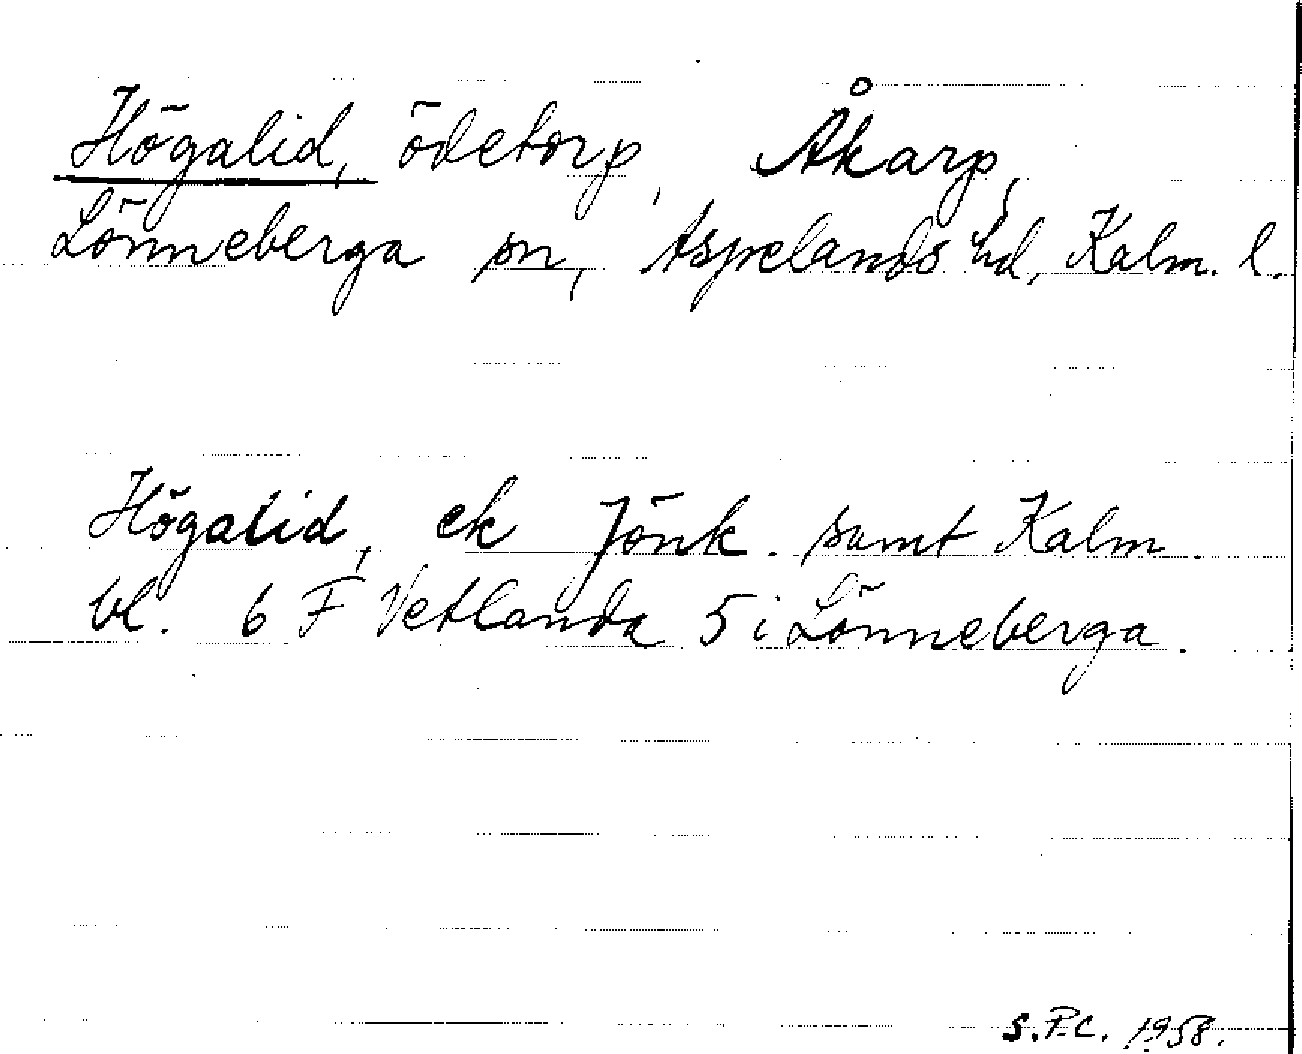 Högalid, ödetorp, Åkarp,
Lönneberga sn, Aspelands hd, Kalm. l.
Högalid, ek Jönk. samt Kalm.
bl. 6 F Vetlanda 5 i Lönneberga.
S.F.C. 1958.